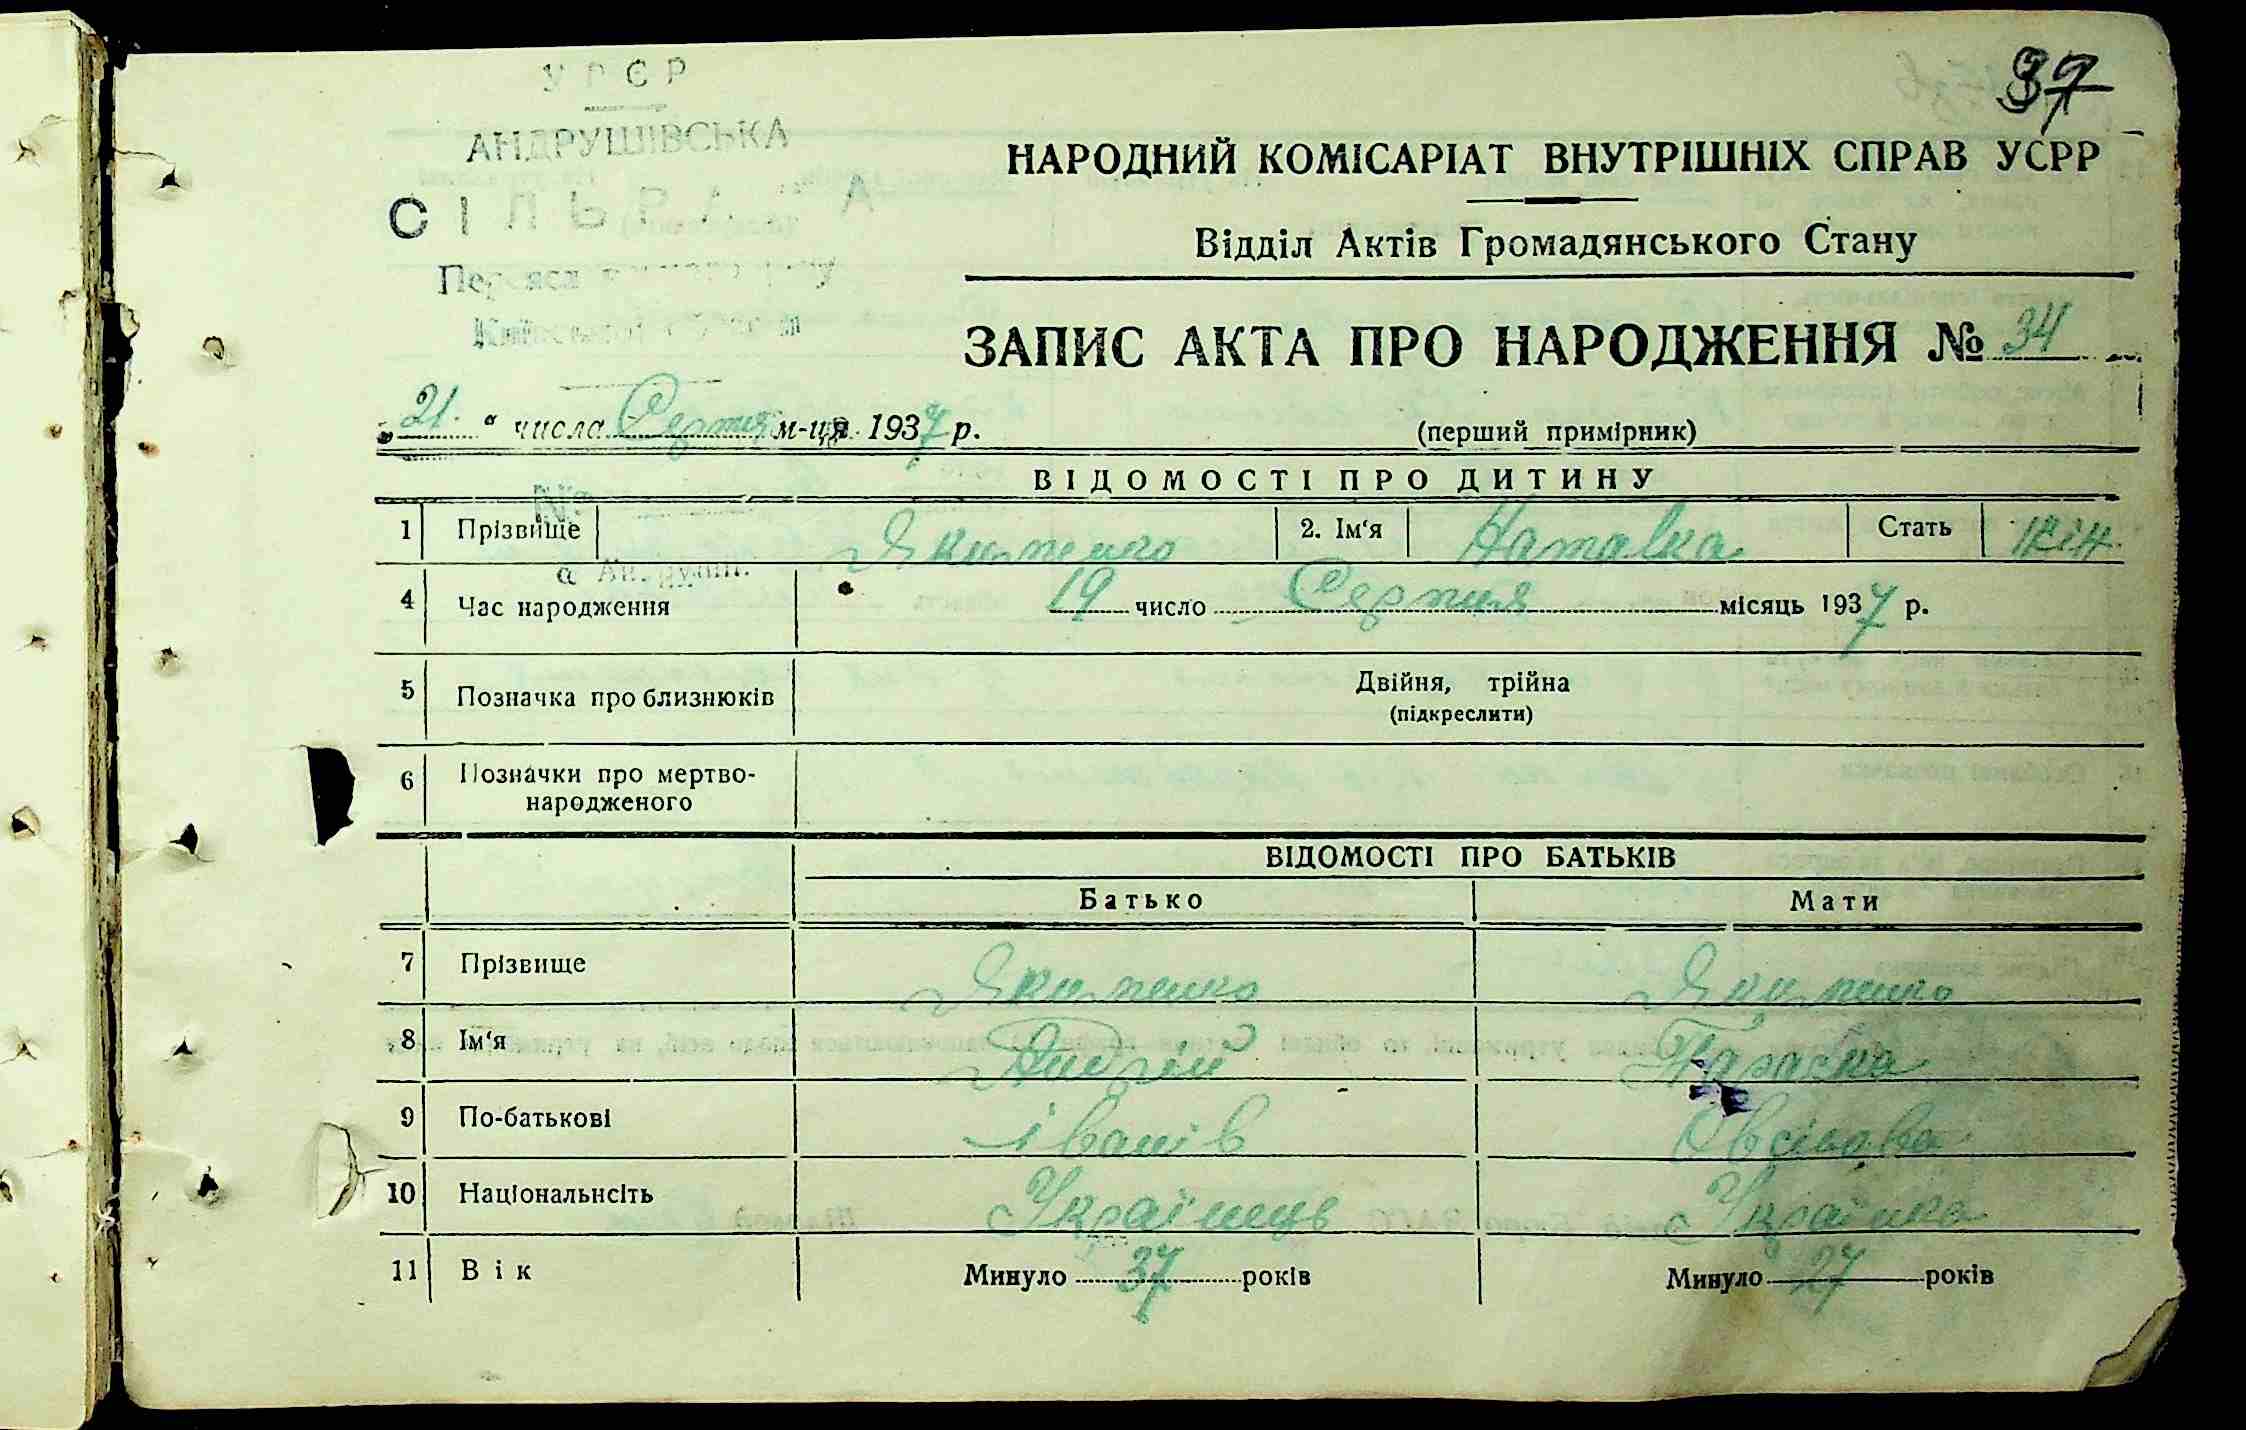 37
УРСР
АНДРУШІВСЬКА
СІЛЬРАДА
НАРОДНИЙ КОМІСАРІАТ ВНУТРІШНІХ СПРАВ УСРР
Відділ Актів Громадянського Стану
ЗАПИС АКТА ПРО НАРОДЖЕННЯ № 34
„21" числа Серпня м-ця 1937 р.
(перший примірник)
ВІДОМОСТІ ПРО ДИТИНУ
№
1 Прізвище Якименко 2. Ім'я Наталка Стать жін
4 Час народження 19 число Серпня місяць 1937 р.
5 Позначка про близнюків Двійня, трійна
(підкреслити)
6 Позначки про мертво-
народженого
ВІДОМОСТІ ПРО БАТЬКІВ
Батько Мати
7 Прізвище Якименко Якименко
8 Ім'я Андрій Параска
9 По-батькові Іванів Овсіївна
10 Національнсіть Українець Українка
11 Вік Минуло 37 років Минуло 27 років